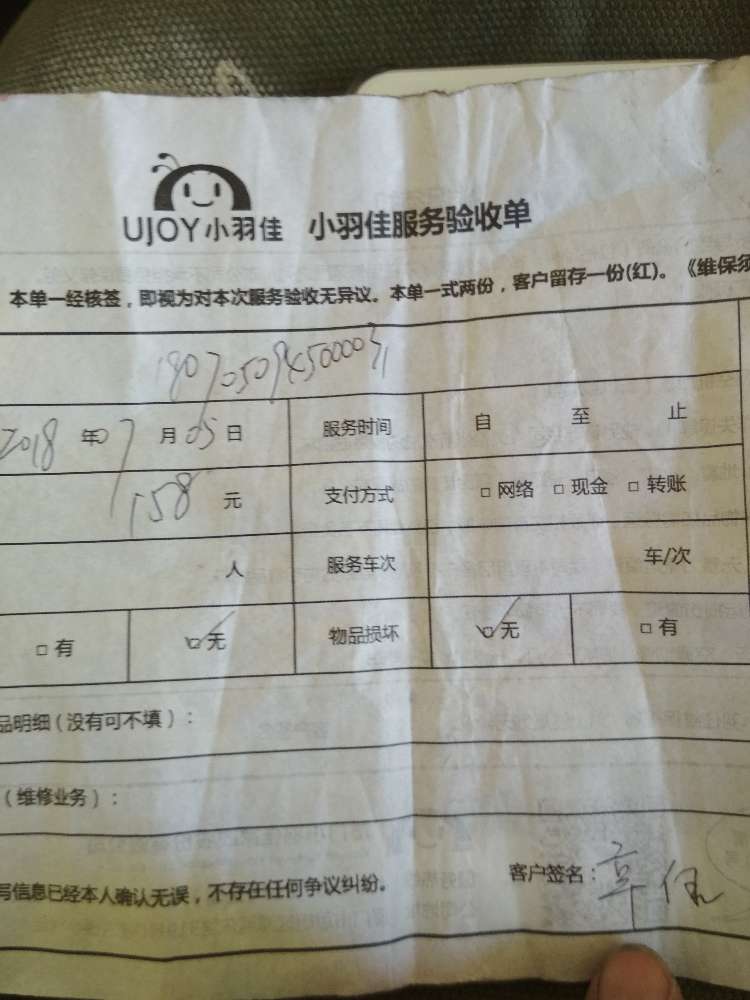 UJOY小羽佳 小羽佳服务验收单
本单一经核签，即视为对本次服务验收无异议。本单一式两份，客户留存一份(红)。《维保须
2018年7月05日 服务时间 自 至 止
158元 支付方式 □网络 □现金 □转账
人 服务车次 车/次
□有 □无 物品损坏 □无 □有
品明细(没有可不填)：
(维修业务)：
写信息已经本人确认无误，不存在任何争议纠纷。 客户签名：